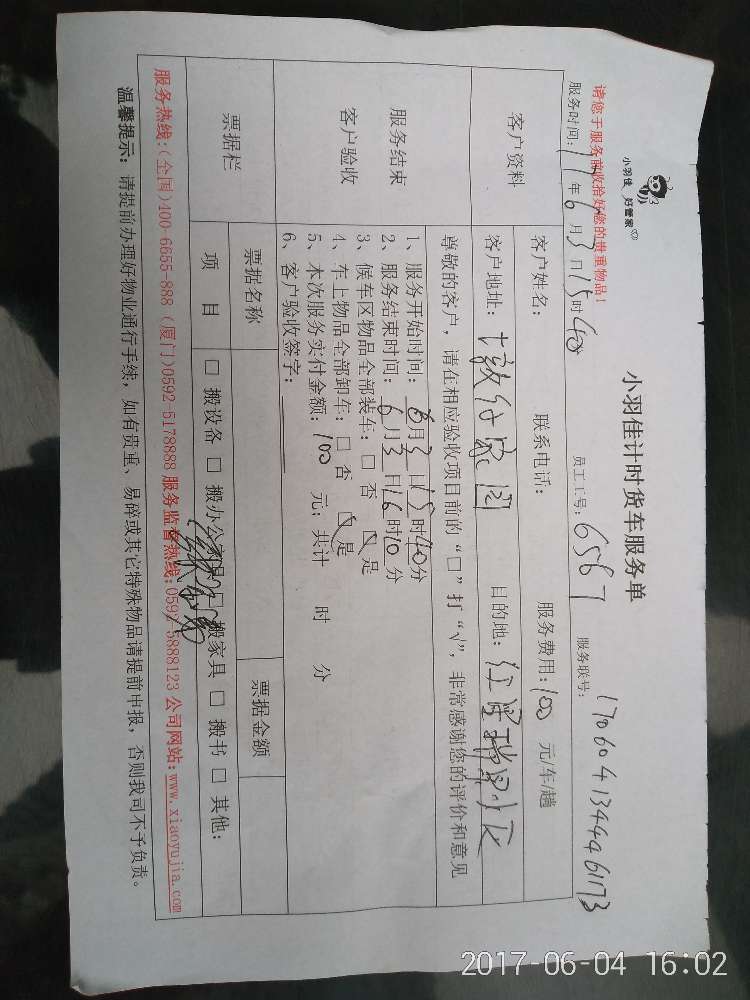 小羽佳 好管家
小羽佳计时货车服务单
请您于服务前收拾好您的贵重物品！
服务时间: 17年6月3日15时40 员工工号: 6567 服务联号: 17060413444461173
客户资料
客户姓名: 联系电话: 服务费用: 100 元/车/趟
客户地址: 目的地:
尊敬的客户，请在相应验收项目前的“□”打“√”，非常感谢您的评价和意见
服务结束
客户验收
1、服务开始时间: 6月3日15时40分
2、服务结束时间: 6月3日16时10分
3、候车区物品全部装车: □ 否 ☑ 是
4、车上物品全部卸车: □ 否 ☑ 是
5、本次服务实付金额: 100 元; 共计 时 分
6、客户验收签字:
票据栏 票据名称 票据金额
项目 □ 搬设备 □ 搬办公家具 □ 搬家具 □ 搬书 □ 其他:
服务热线:(全国)400-6655-888 (厦门)0592-5178888 服务监督热线:0592-5888123 公司网站:www.xiaoyujia.com
温馨提示: 请提前办理好物业通行手续，如有贵重、易碎或其它特殊物品请提前申报，否则我司不予负责。
2017-06-04 16:02